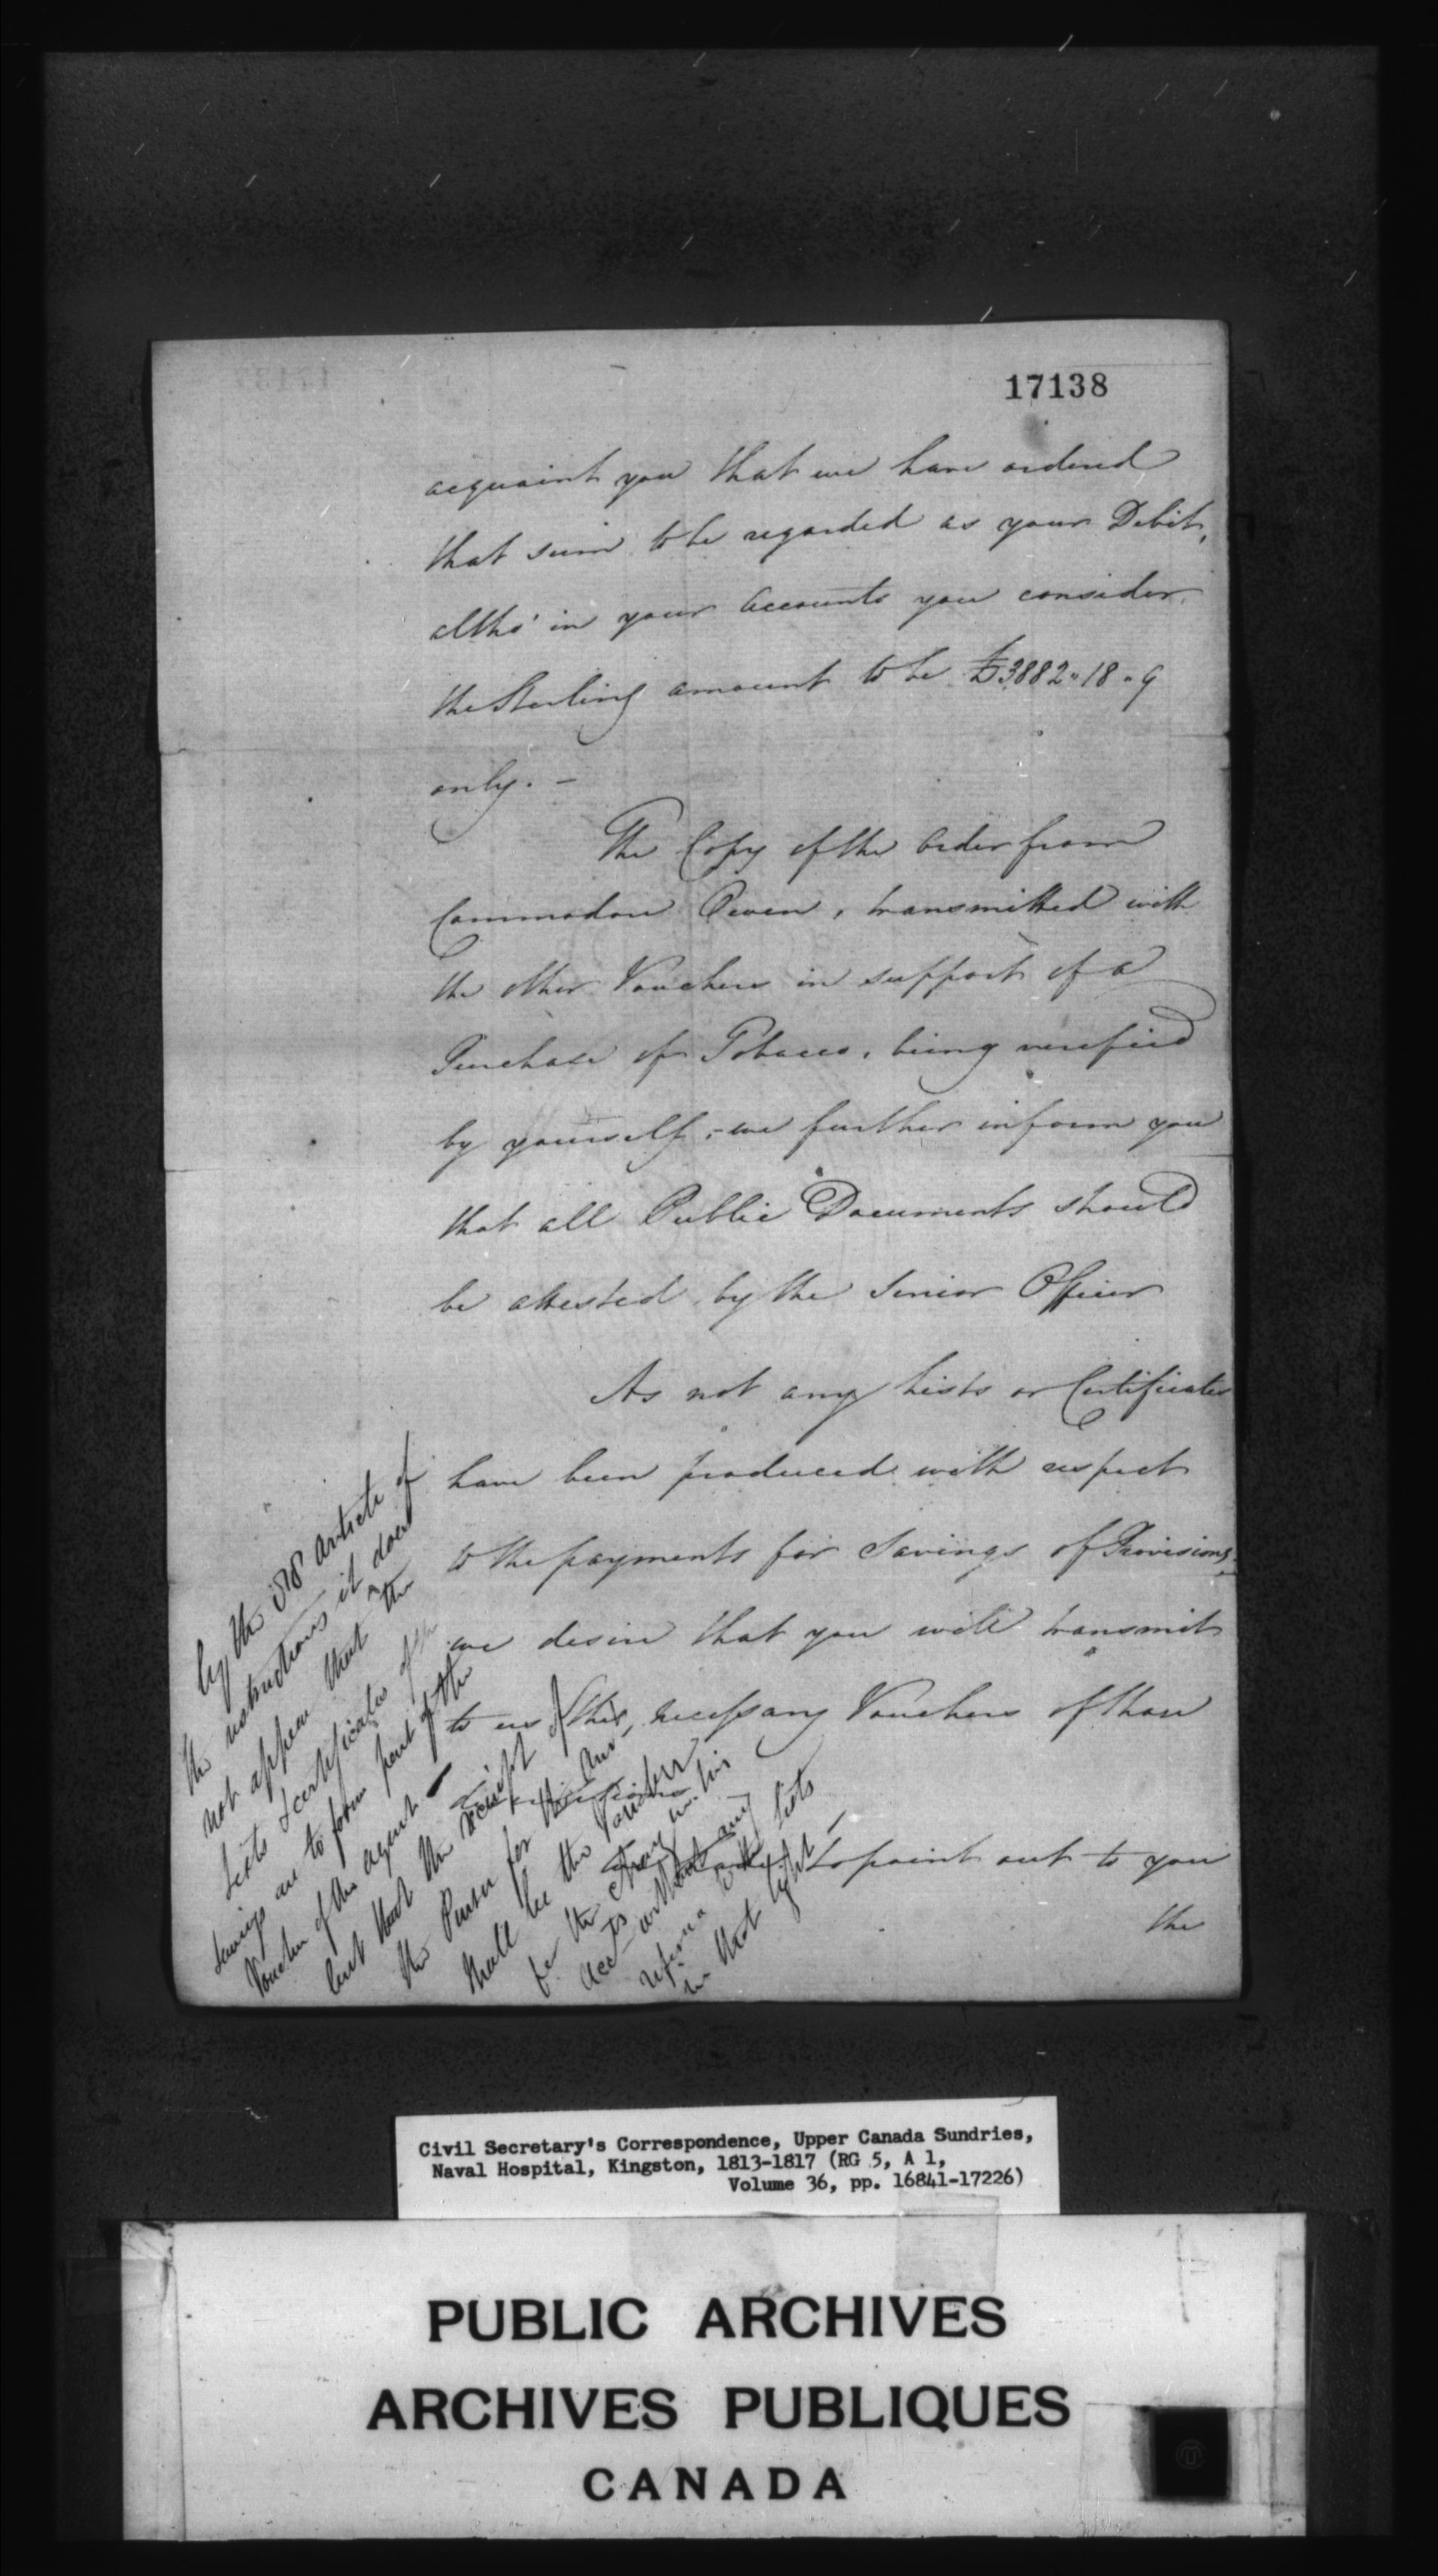 17138
acquaint you that we have ordered
that sum to be regarded as your Debit,
altho' in your Accounts you consider
the Sterling amount to be £3882 " 18 " 9
only. -
The Copy of the Order from
Commodore Owen, transmitted with
the other Vouchers in support of a
Purchase of Tobacco, being verefied
by yourself; we further inform you
that all Public Documents should
be attested by the Senior Officer
As not any Lists or Certificates
have been produced with respect
to the payments for Savings of Provisions,
we desire that you will transmit
to us the necessary Vouchers of those
to point out to you
the
by the 58 Article of
the instructions it does
not appear that the
Lists & certificates of the
savings are to form part of the
Voucher of the agent
but that the receipt of
the Purser for the
shall be the Voucher
for the
accts without any
reference to the Lists
in that light
Civil Secretary's Correspondence, Upper Canada Sundries,
Naval Hospital, Kingston, 1813-1817 (RG 5, A 1,
Volume 36, pp. 16841-17226)
PUBLIC ARCHIVES
ARCHIVES PUBLIQUES
CANADA